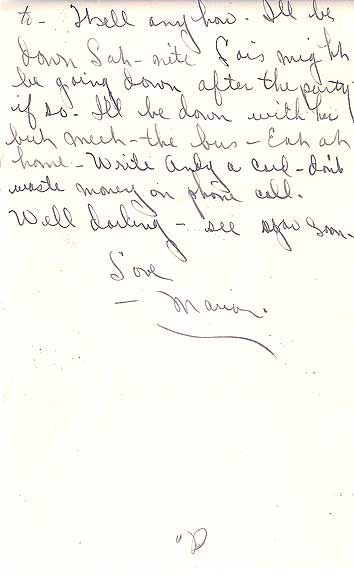 to - Well anyhow. I'll be
down Sat-nite Lois might
be going down after the party
if so. I'll be down with her
but meet - the bus - Eat at
home - Write Andy a card - don't
waste money on phone call.
Well darling - see you soon.
Love
- Marion.